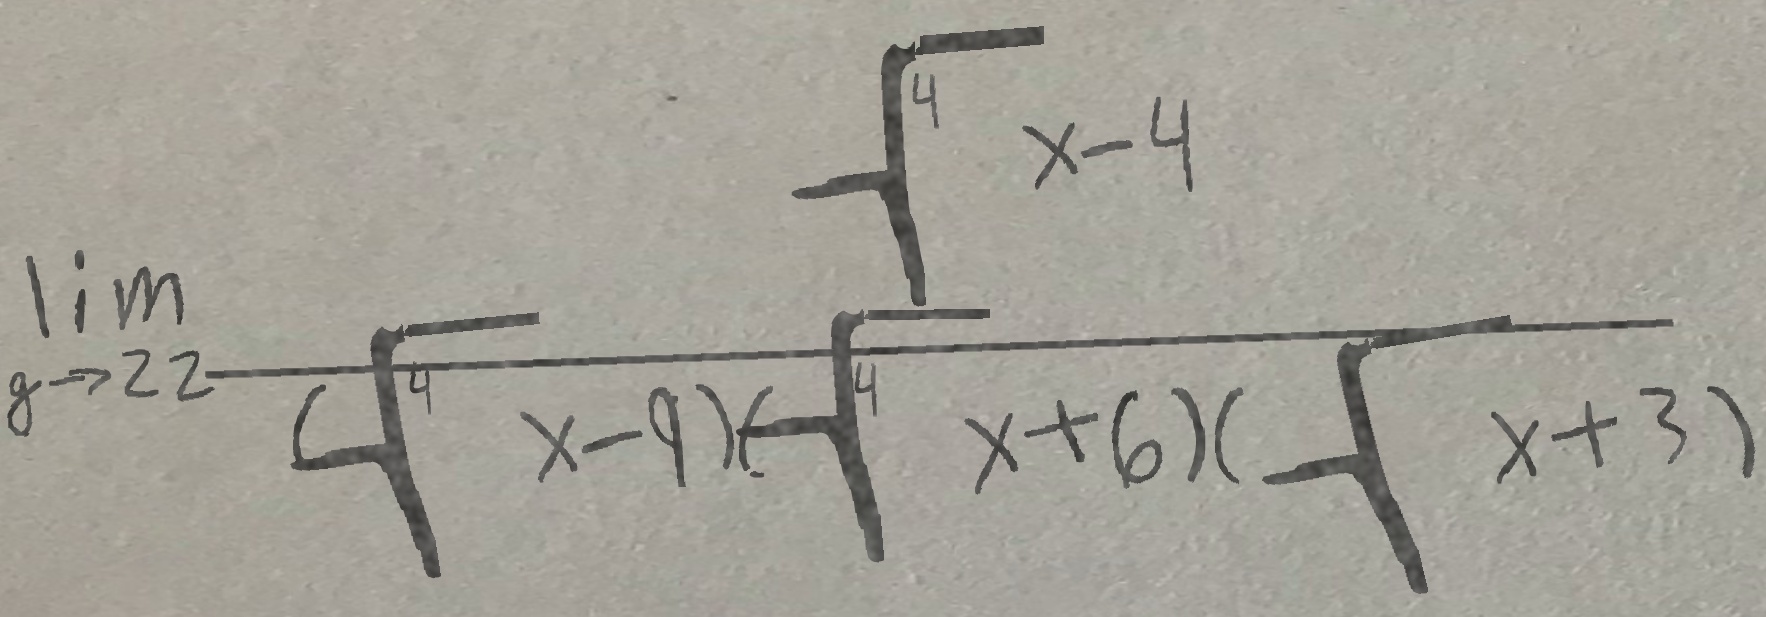 lim g→22 \frac{\sqrt{4} x-4}{(\sqrt{4} x-9)(\sqrt{4} x+6)(\sqrt{} x+3)}